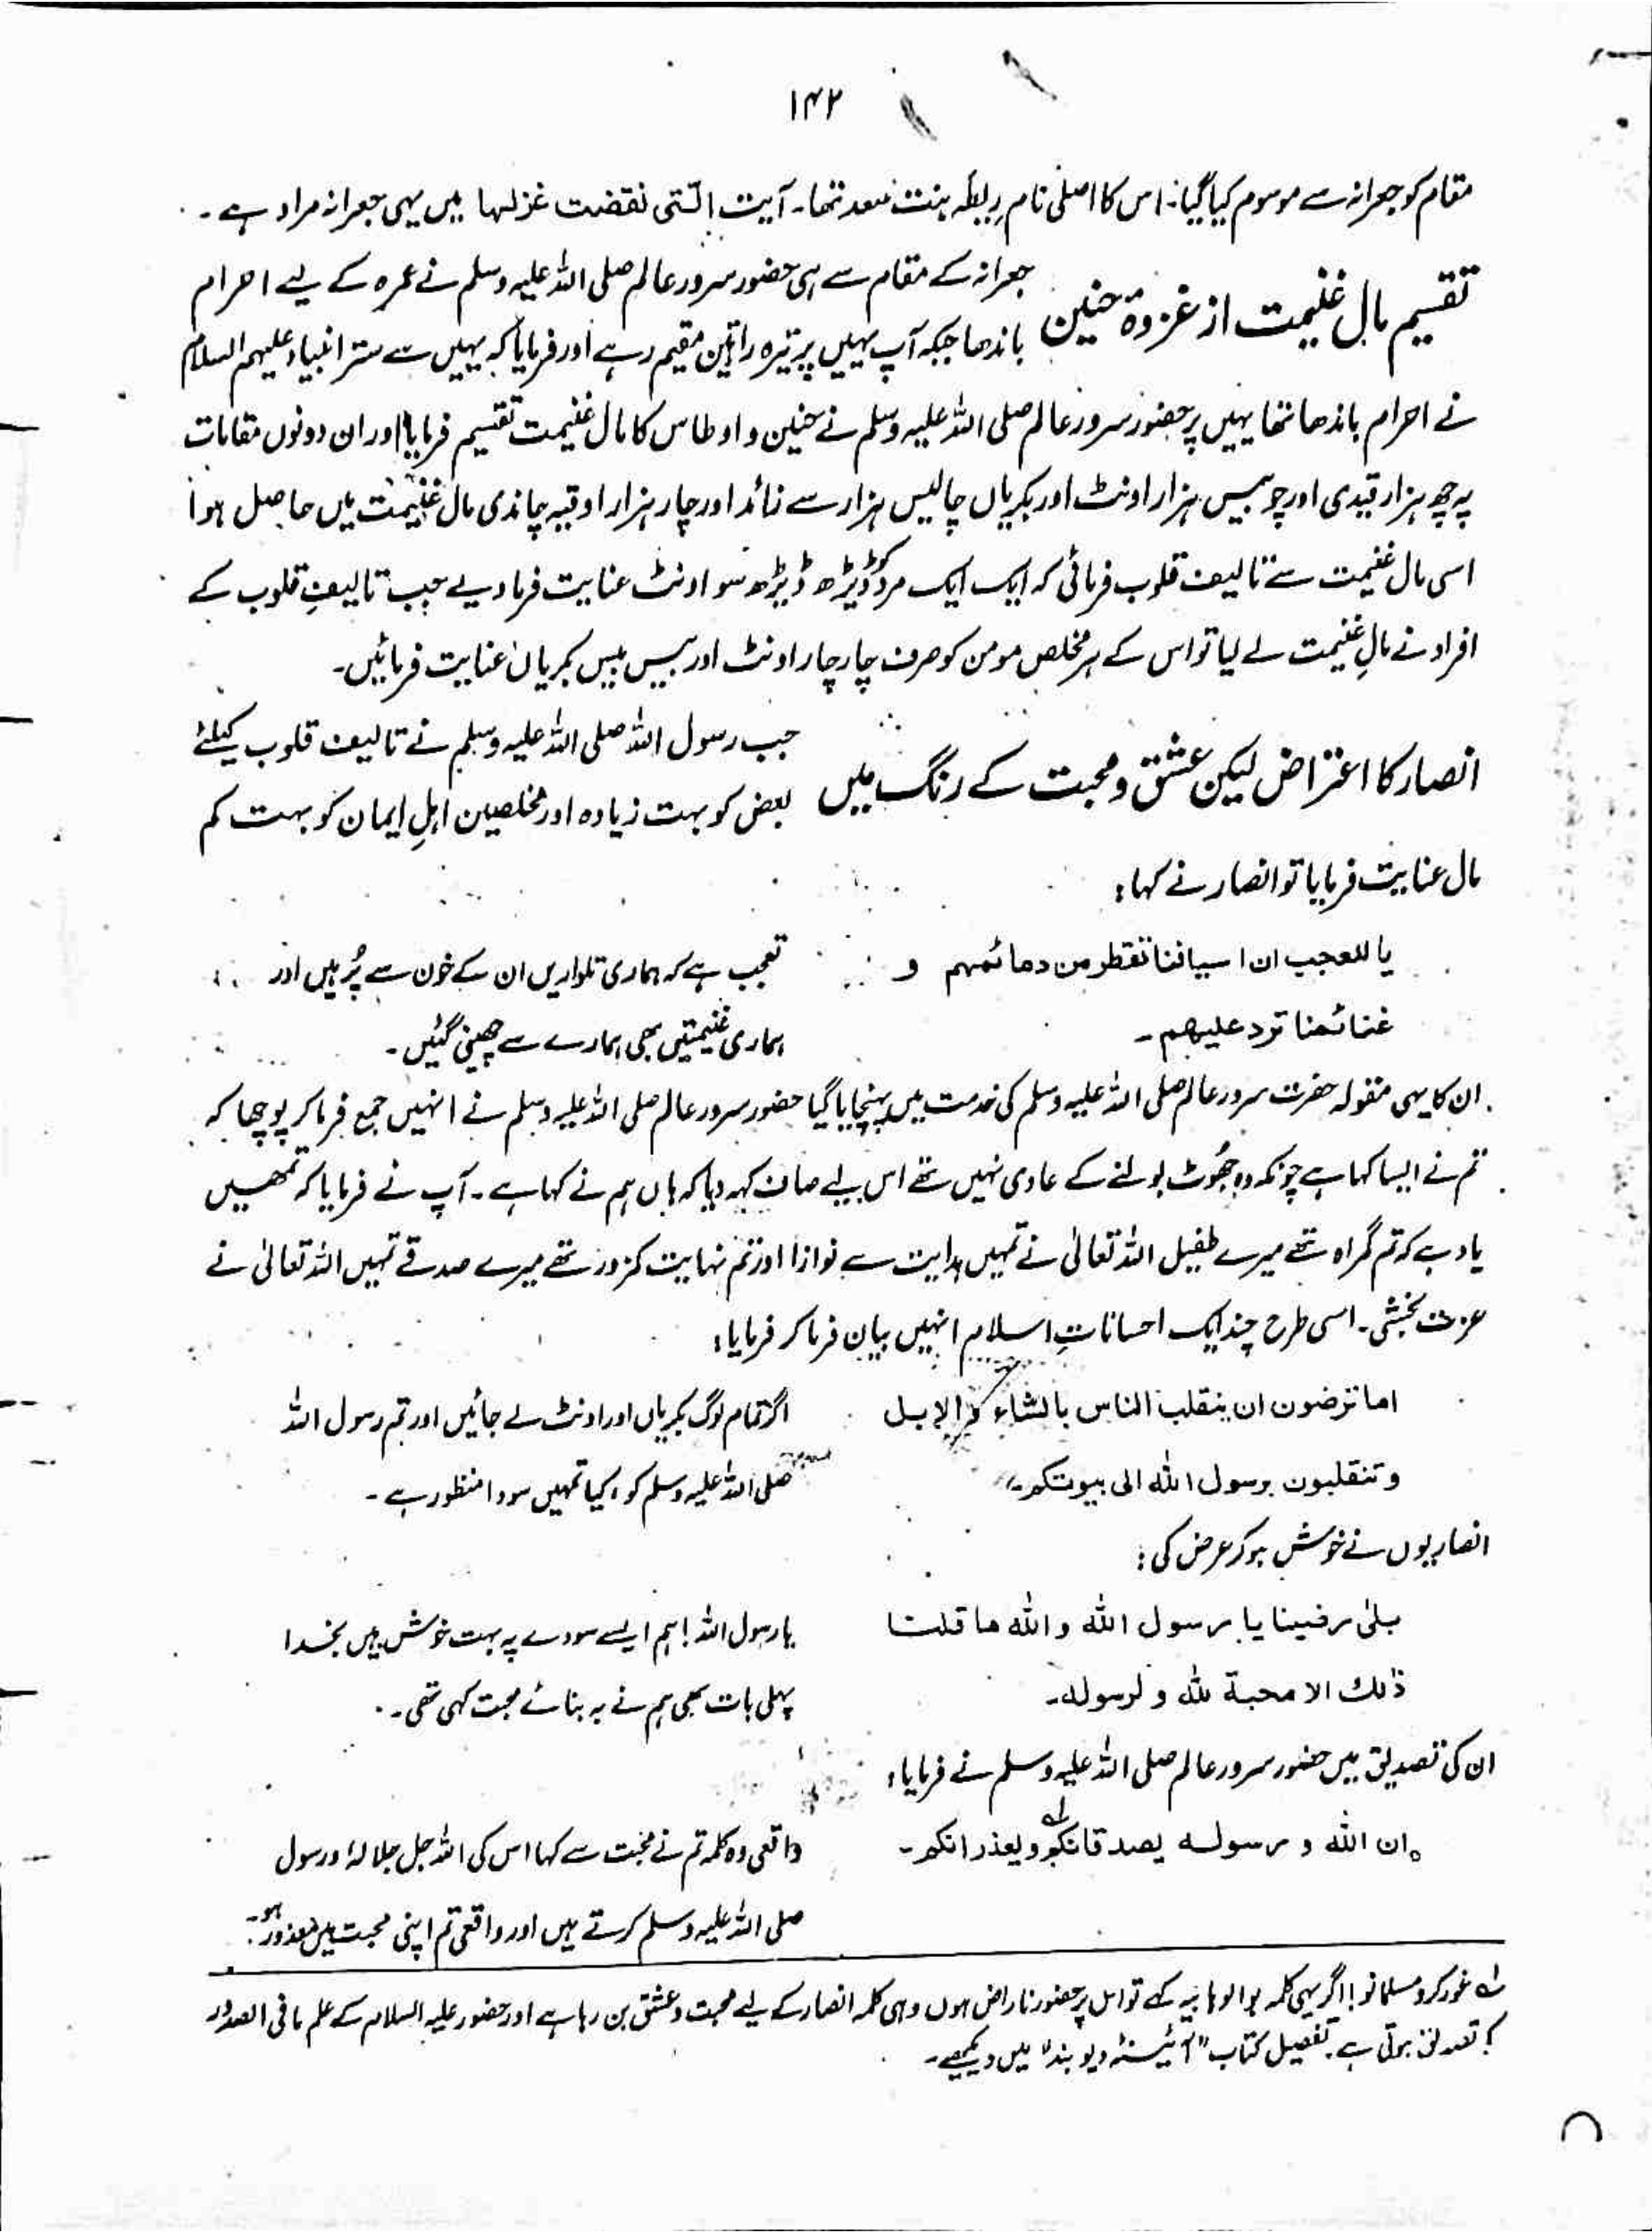 ۱۴۲
مقام کو جعرانہ سے موسوم کیا گیا: اس کا اصلی نام ریطہ بنت سعد تھا۔ آیت الّتی نقضت غزلها میں یہی جعرانہ مراد ہے۔
تقسیم مال غنیمت از غزوۂ حنین
جعرانہ کے مقام سے ہی حضور سرور عالم صلی اللہ علیہ وسلم نے عمرہ کے لیے احرام
باندھا جبکہ آپ یہیں پر تیرہ راتیں مقیم رہے اور فرمایا کہ یہیں سے ستر انبیاء علیہم السلام
نے احرام باندھا تھا یہیں پر حضور سرور عالم صلی اللہ علیہ وسلم نے حنین و اوطاس کا مال غنیمت تقسیم فرمایا اور ان دونوں مقامات
پر چھ ہزار قیدی اور چوبیس ہزار اونٹ اور بکریاں چالیس ہزار سے زائد اور چار ہزار اوقیہ چاندی مال غنیمت میں حاصل ہوا
اسی مال غنیمت سے تالیف قلوب فرمائی کہ ایک ایک مرد کو ڈیڑھ ڈیڑھ سو اونٹ عنایت فرما دیے جب تالیفِ قلوب کے
افراد نے مالِ غنیمت لے لیا تو اس کے ہر مخلص مومن کو صرف چار چار اونٹ اور بیس بیس بکریاں عنایت فرمائیں۔
انصار کا اعتراض لیکن عشق و محبت کے رنگ میں
جب رسول اللہ صلی اللہ علیہ وسلم نے تالیف قلوب کیلئے
بعض کو بہت زیادہ اور مخلصین اہلِ ایمان کو بہت کم
مال عنایت فرمایا تو انصار نے کہا:
یا للعجب ان اسیافنا تقطر من دمائهم و
غنائمنا ترد علیهم۔
تعجب ہے کہ ہماری تلواریں ان کے خون سے پُر ہیں اور
ہماری غنیمتیں بھی ہمارے سے چھینی گئیں۔
ان کا یہی مقولہ حضرت سرور عالم صلی اللہ علیہ وسلم کی خدمت میں پہنچایا گیا حضور سرور عالم صلی اللہ علیہ وسلم نے انہیں جمع فرما کر پوچھا کہ
تم نے ایسا کہا ہے چونکہ وہ جھُوٹ بولنے کے عادی نہیں تھے اس لیے صاف کہہ دیا کہ ہاں ہم نے کہا ہے۔ آپ نے فرمایا کہ تمھیں
یاد ہے کہ تم گمراہ تھے میرے طفیل اللہ تعالیٰ نے تمہیں ہدایت سے نوازا اور تم نہایت کمزور تھے میرے صدقے تمہیں اللہ تعالیٰ نے
عزت بخشی۔ اسی طرح چند ایک احساناتِ اسلام انہیں بیان فرما کر فرمایا:
اما ترضون ان ینقلب الناس بالشاء و الابل
و تنقلبون برسول اللہ الی بیوتکم۔
اگر تمام لوگ بکریاں اور اونٹ لے جائیں اور تم رسول اللہ
صلی اللہ علیہ وسلم کو، کیا تمہیں سودا منظور ہے۔
انصاریوں نے خوش ہو کر عرض کی:
بلیٰ رضینا یا رسول اللہ و اللہ ما قلنا
ذٰلك الا محبة للہ و لرسوله۔
یا رسول اللہ! ہم ایسے سودے پہ بہت خوش ہیں بخدا
پہلی بات بھی ہم نے بہ بنائے محبت کہی تھی۔
ان کی تصدیق میں حضور سرور عالم صلی اللہ علیہ وسلم نے فرمایا:
ان اللہ و رسوله یصدقانکم و یعذرانکم۔
واقعی وہ کلمہ تم نے محبت سے کہا اس کی اللہ جل جلالہٗ و رسول
صلی اللہ علیہ وسلم کرتے ہیں اور واقعی تم اپنی محبت میں معذور ہو۔
لہ غور کرو مسلمانو! اگر یہی کلمہ ہوا وہابیہ کہے تو اس پر حضور ناراض ہوں وہی کلمہ انصار کے لیے محبت و عشق بن رہا ہے اور حضور علیہ السلام کے علم مافی الصدور
کی تصدیق ہوتی ہے۔ تفصیل کتاب "آئینۂ دیوبند" میں دیکھیے۔